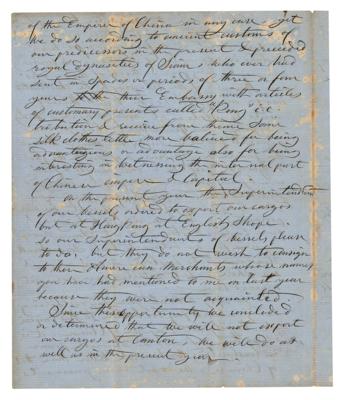 of the Empire of China in any case yet
we do so according to ancient customs of
our predicessors in the present & preceded
royal dynasities of Siam who ever had
sent in spaces or periods of three or four
years their Embassy with articles
of customary presents called "Pony" i.e.
tribution & receive from them some
silk clothes, more for being
advantageous in advantage also for being
interesting in witnessing the internal part
of Chinese empire & Capital.
On the present year the Superintendent
of our vessels ordered to export our cargos
but at Hong Kong at English Shope.
so our Superintendents of vessels please
to do, but they do not wish to consign
to there American Merchants whose names
you have had mentioned to me on last year
because they were not acquainted
Since this oppertunity we concluded
or determined that we will not export
our cargos at Canton, we will do as
well as in the present year.